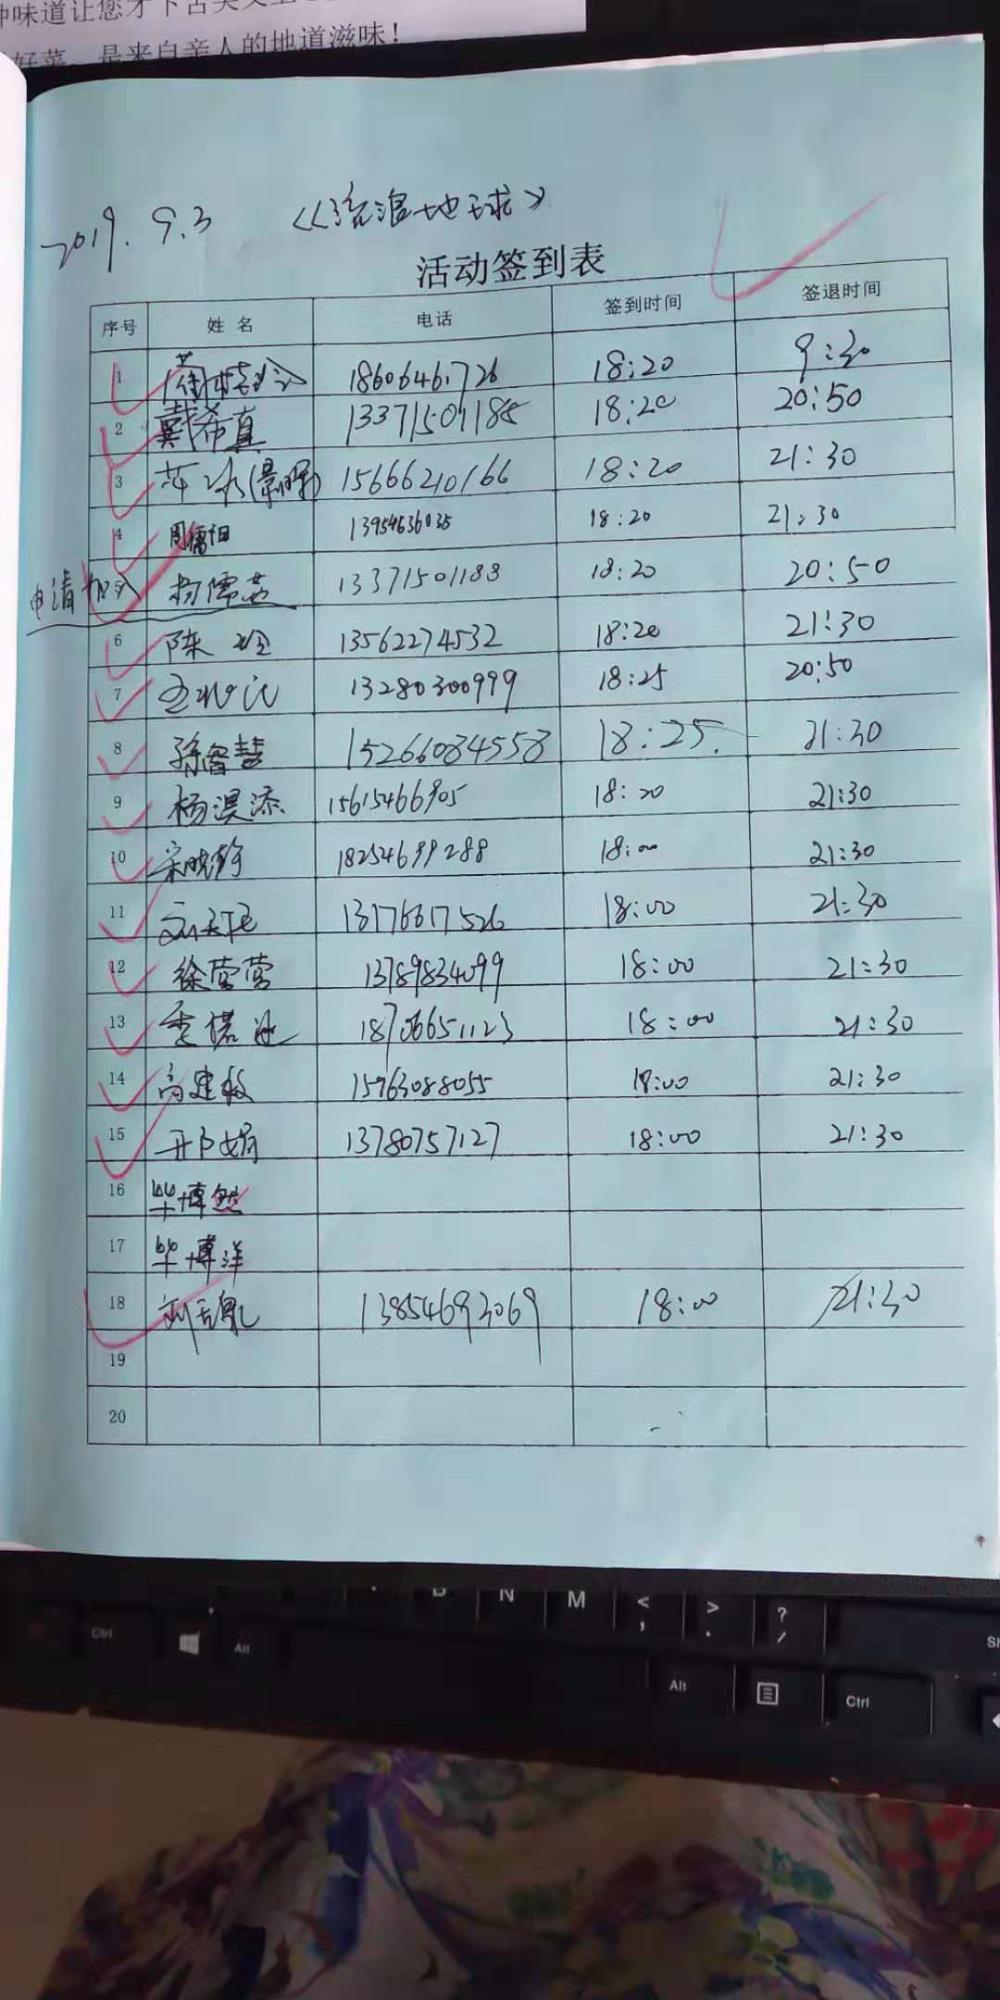 味道让您才下舌尖又上
好菜，是来自亲人的地道滋味！
2019. 9.3 《流浪地球》
活动签到表
序号 姓名 电话 签到时间 签退时间
1 18606461726 18:20 9:30
2 戴希真 13371501188 18:20 20:50
3 15666210166 18:20 21:30
4 13954636035 18:20 21:30
申请加入
5 杨儒芸 13371501188 18:20 20:50
6 陈 13562274532 18:20 21:30
7 13280300999 18:25 20:50
8 15266084558 18:25. 21:30
9 杨淏添 15615466905 18:20 21:30
10 宋晓 18254699288 18:00 21:30
11 13176617526 18:00 21:30
12 徐莹莹 13789834099 18:00 21:30
13 18706651123 18:00 21:30
14 高建 15763088055 18:00 21:30
15 13780757127 18:00 21:30
16 毕博然
17 毕博洋
18 13854693069 18:00 21:30
19
20
B N M < , > . ? /
Ctrl Alt Alt Ctrl